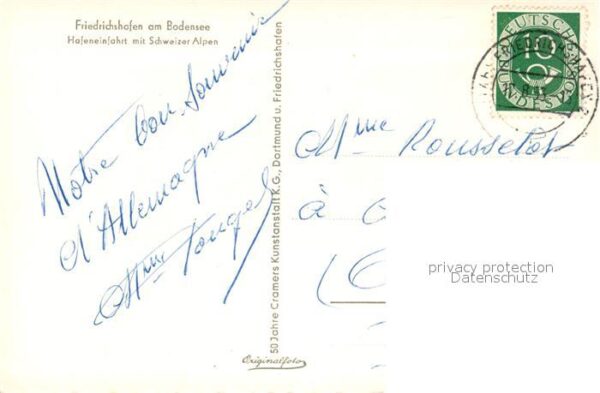 Friedrichshafen am Bodensee
Hafeneinfahrt mit Schweizer Alpen
Notre bon Souvenir
d'Allemagne
Mme
50 Jahre Cramers Kunstanstalt K.G., Dortmund u. Friedrichshafen
Originalfoto
DEUTSCHE
10
BUNDESPOST
FRIEDRICHSHAFEN
Mme Rousselot
à
privacy protection
Datenschutz